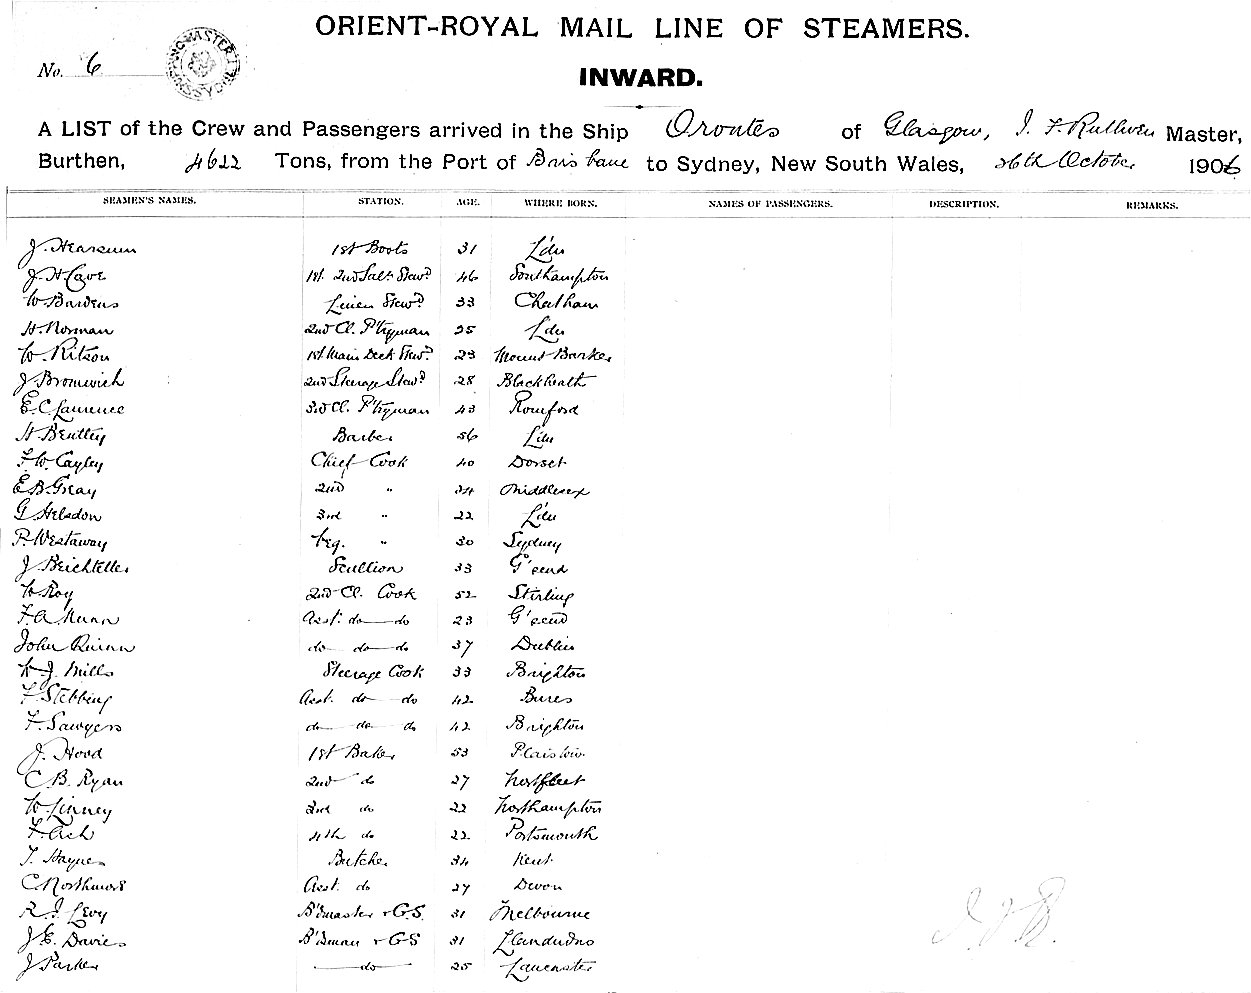 ORIENT-ROYAL MAIL LINE OF STEAMERS.
No. 6
INWARD.
A LIST of the Crew and Passengers arrived in the Ship Orontes of Glasgow, J. F. Ruthven Master,
Burthen, 4622 Tons, from the Port of Brisbane to Sydney, New South Wales, 26th October 1906
SEAMEN'S NAMES. STATION. AGE. WHERE BORN. NAMES OF PASSENGERS. DESCRIPTION. REMARKS.
J. Hearsum 1st Boots 31 L'dn
J. H Cave 1st. 2nd Saln Stewd 46 Southampton
W Bawens Linen Stewd 33 Chatham
H. Norman 2nd Cl. P'tryman 25 L'dn
W. Ritson 1st Main Deck Stewd 23 Mount Barker
J Bromwich 2nd Steerage Stewd 28 Blackheath
E. C Laurence 3rd Cl. P'tryman 43 Romford
H. Bentley Barber 56 L'dn
F. W. Cayley Chief Cook 40 Dorset
E B Gray 2nd " 34 Middlesex
G Helsdon 3rd " 22 L'dn
P. Westaway Veg. " 30 Sydney
J Scullion 33 G'send
W Roy 2nd Cl. Cook 52 Stirling
F. A Munn Asst. do do 23 G'send
John Quinn do do do 37 Dublin
W. J. Mills Steerage Cook 33 Brighton
F. Stebbing Asst. do do 42 Bures
F. Sawyers do do do 42 Brighton
J. Hood 1st Baker 53 Plaistow
C. B. Ryan 2nd do 27 Northfleet
W Linney 3rd do 22 Northampton
F. Ash 4th do 22 Portsmouth
T. Haynes Butcher 34 Kent
C Northmore Asst. do 27 Devon
R. J. Levy B'dmaster & G.S. 31 Melbourne
J. E. Davies B'dman & GS 31 Llandudno
J Parker do 25 Lancaster